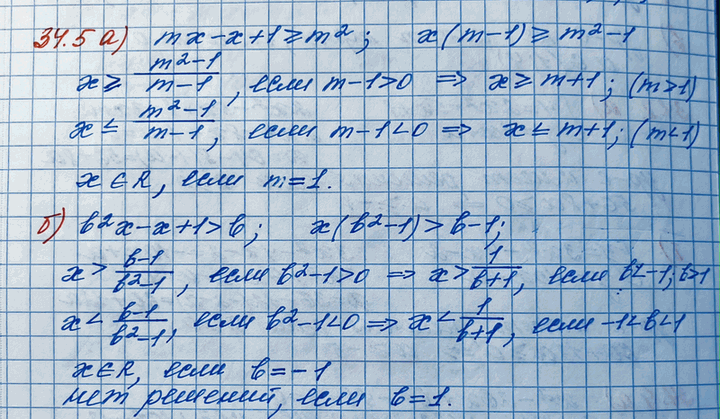 34.5 а) mx-x+1≥m²; x(m-1)≥m²-1
x≥ (m²-1)/(m-1), если m-1>0 ⇒ x≥m+1; (m>1)
x≤ (m²-1)/(m-1), если m-1<0 ⇒ x≤m+1; (m<1)
x∈R, если m=1.
б) b²x-x+1>b; x(b²-1)>b-1;
x> (b-1)/(b²-1), если b²-1>0 ⇒ x> 1/(b+1), если b<-1; b>1
x< (b-1)/(b²-1), если b²-1<0 ⇒ x< 1/(b+1), если -1<b<1
x∈R, если b=-1
нет решений, если b=1.